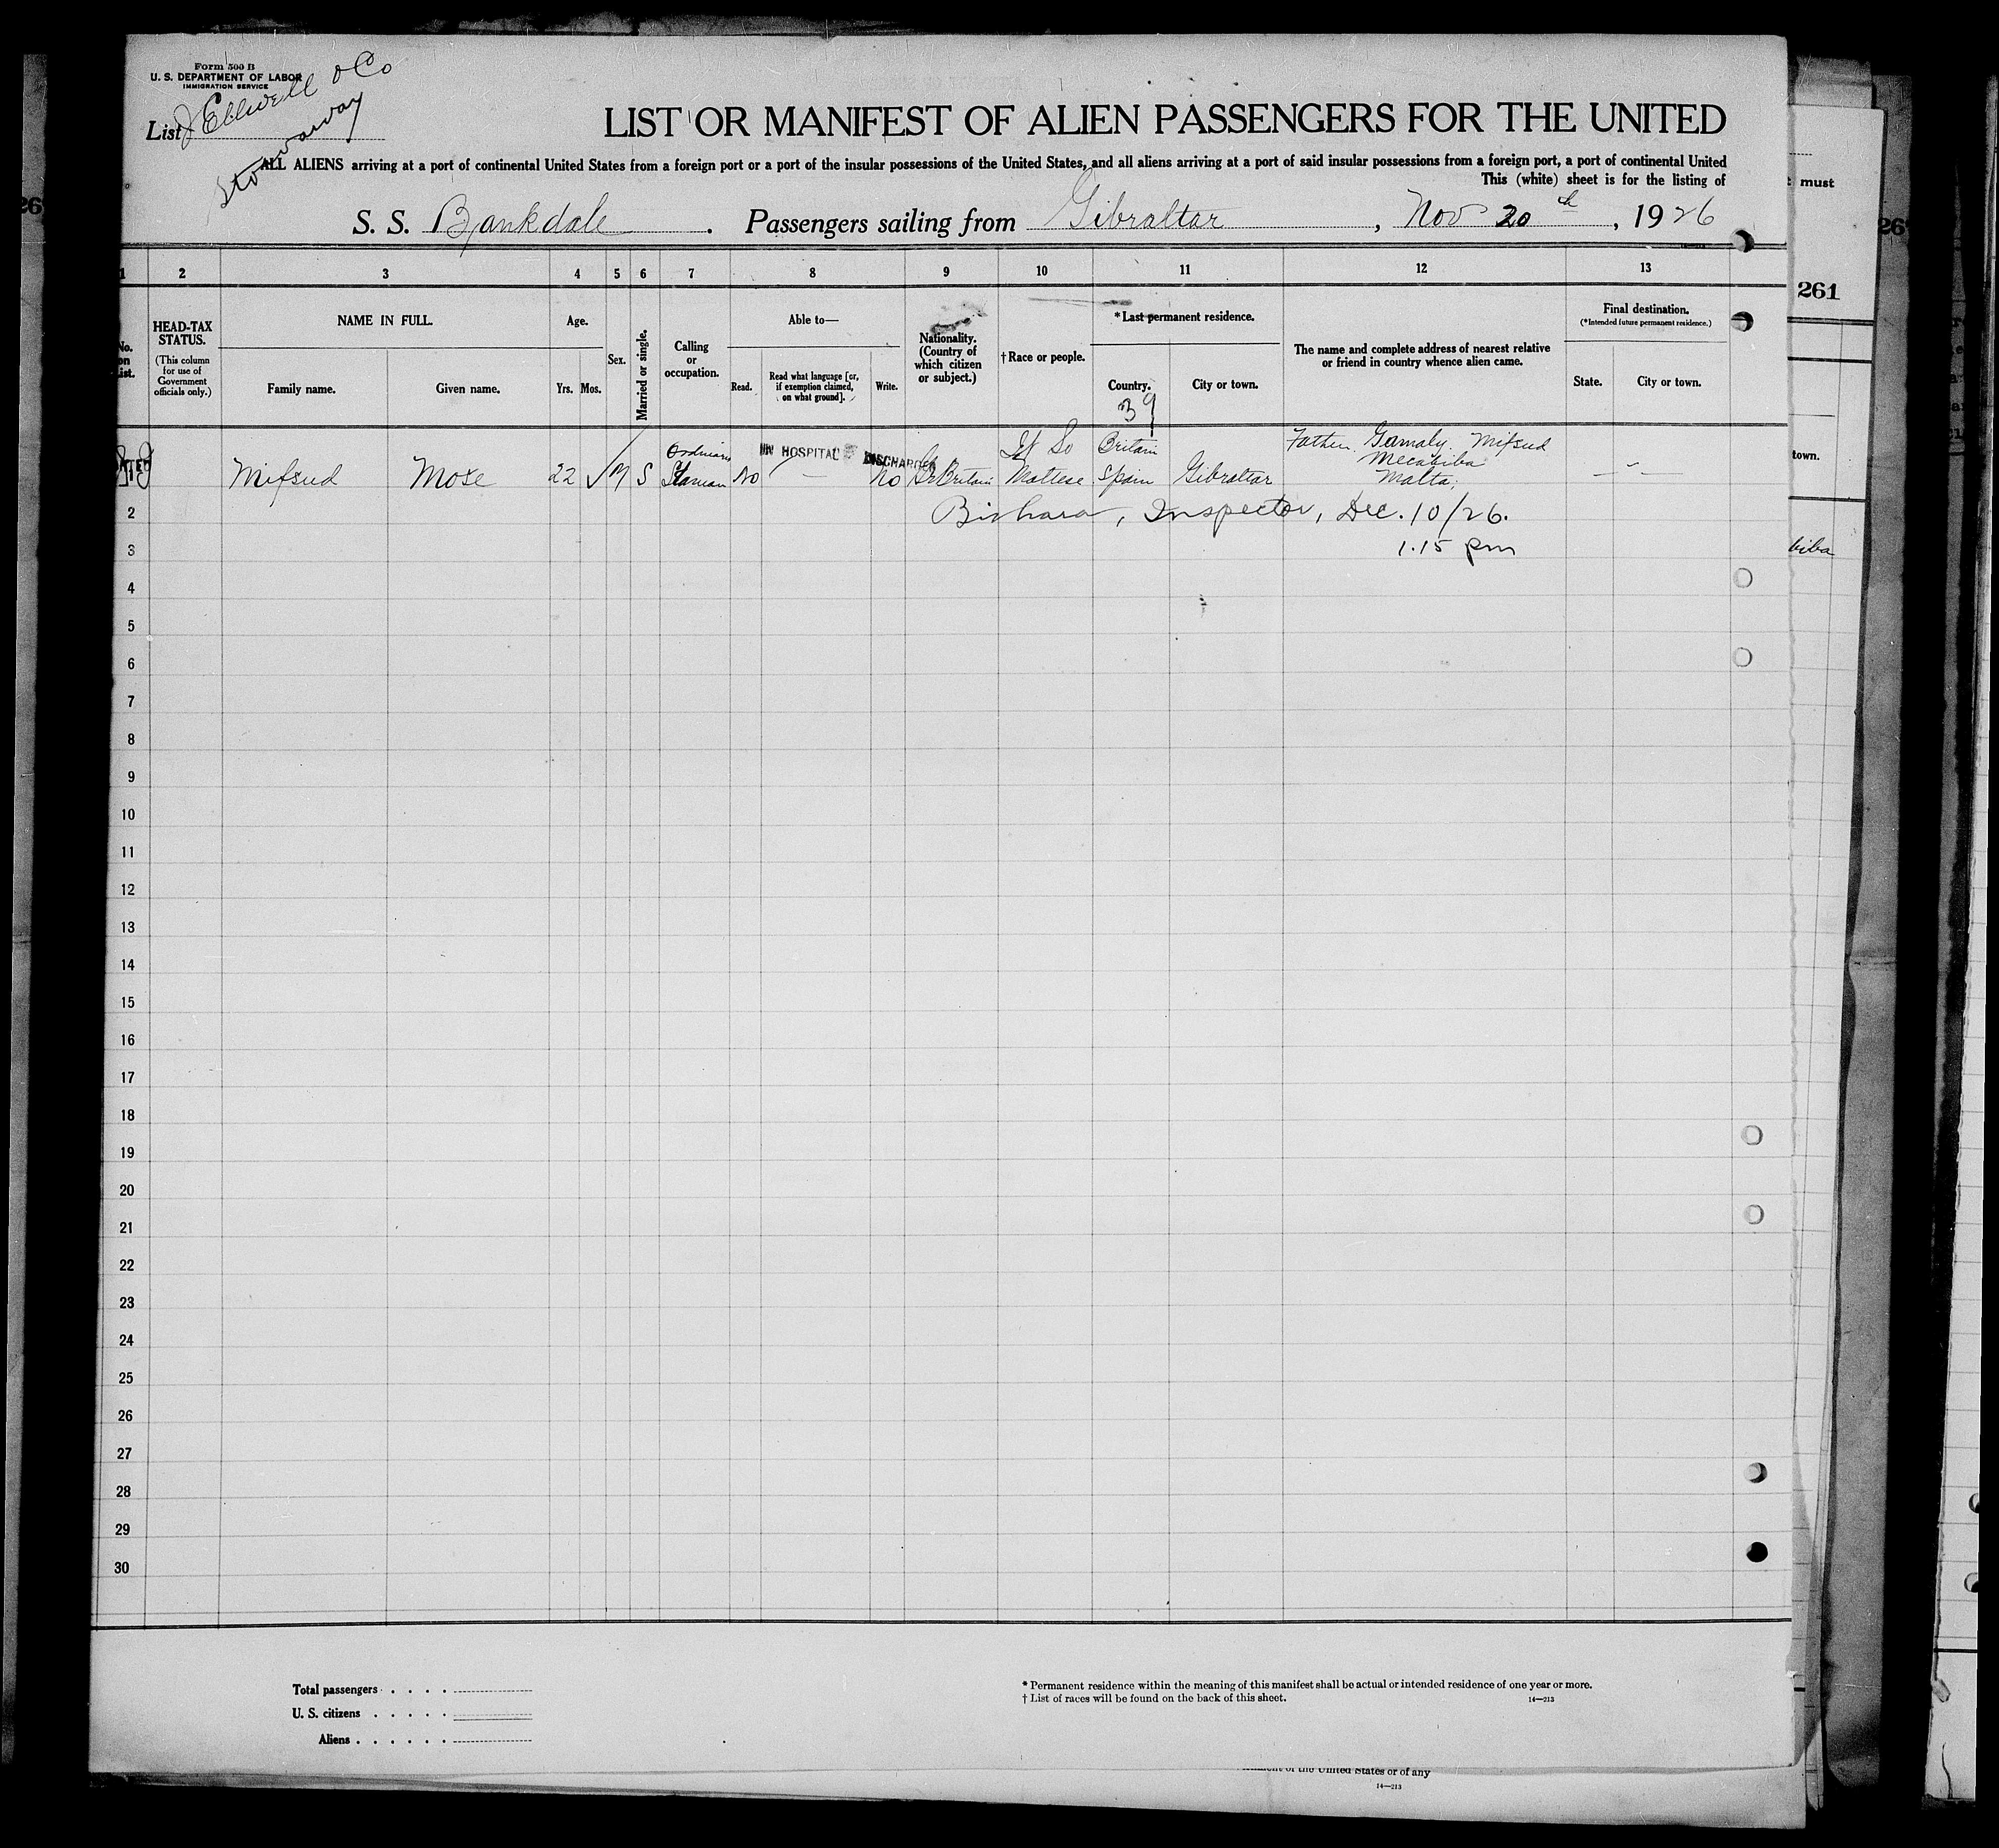 Form 500 B
U. S. DEPARTMENT OF LABOR
IMMIGRATION SERVICE
J Ellwell & Co
List
Stowaway
LIST OR MANIFEST OF ALIEN PASSENGERS FOR THE UNITED
ALL ALIENS arriving at a port of continental United States from a foreign port or a port of the insular possessions of the United States, and all aliens arriving at a port of said insular possessions from a foreign port, a port of continental United
This (white) sheet is for the listing of
S. S. Bankdale . Passengers sailing from Gibraltar , Nov 20th , 1926
1 2 3 4 5 6 7 8 9 10 11 12 13
No. on List.
HEAD-TAX STATUS.
(This column for use of Government officials only.)
NAME IN FULL.
Family name. Given name.
Age.
Yrs. Mos.
Sex.
Married or single.
Calling or occupation.
Able to—
Read. Read what language [or, if exemption claimed, on what ground]. Write.
Nationality. (Country of which citizen or subject.)
† Race or people.
* Last permanent residence.
Country. City or town.
39
The name and complete address of nearest relative or friend in country whence alien came.
Final destination.
(*Intended future permanent residence.)
State. City or town.
IN HOSPITAL DISCHARGED
It So Britain Father Mifsud
Mifsud Mose 22 M S Seaman No — No Gt Britain Maltese Spain Gibraltar Malta. — " —
2 Inspector, Dec. 10/26.
3 1.15 pm
4
5
6
7
8
9
10
11
12
13
14
15
16
17
18
19
20
21
22
23
24
25
26
27
28
29
30
Total passengers . . . .
U. S. citizens . . . . .
Aliens . . . . . .
* Permanent residence within the meaning of this manifest shall be actual or intended residence of one year or more.
† List of races will be found on the back of this sheet.
14—213
must
261
town.
biba
of the United States or of any
14—213